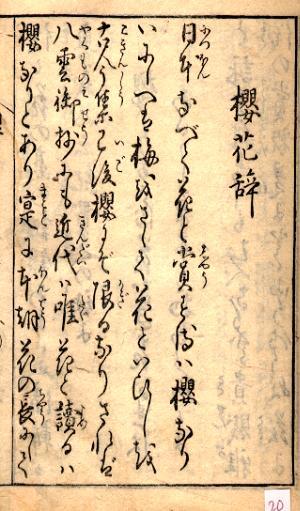 櫻花辞
日本なべて花と賞するハ櫻なり
いにしへは梅をさして花といひしを
古今集已後櫻にぞ限るなりされば
八雲御抄にも近代ハ唯花と讀るハ
櫻なりとあり寔に本朝花の長にして
20